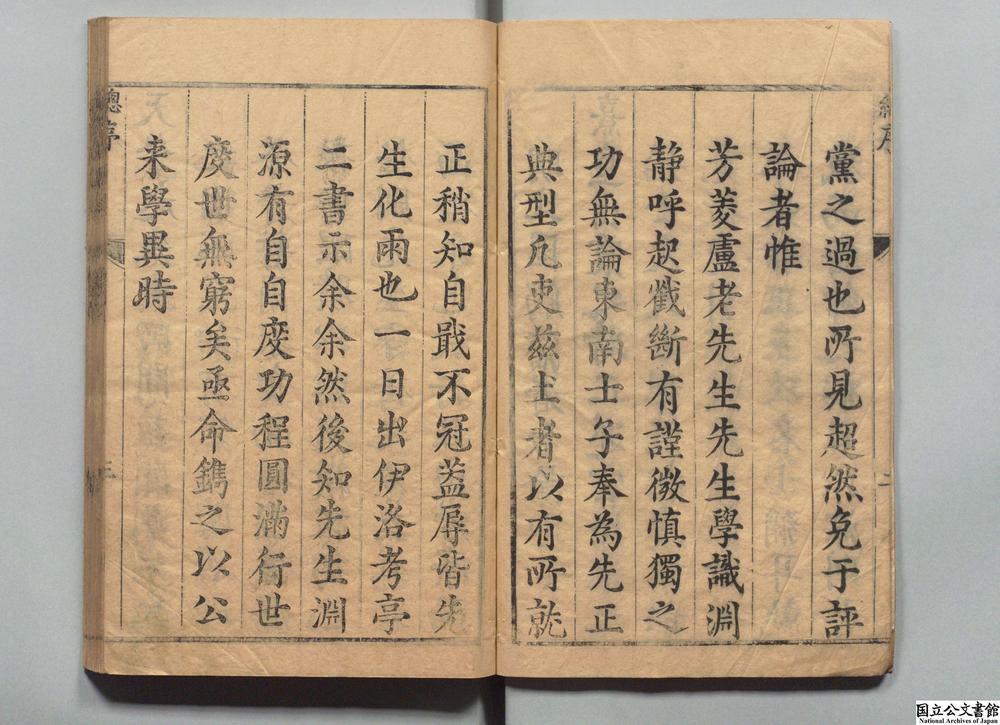 黨之過也所見超然免于評
論者惟
芳菱盧老先生先生學識淵
静呼起截斷有謹微慎獨之
功無論東南士子奉為先正
典型凢吏兹土者以有所就
正稍知自戢不冠葢辱皆先
生化雨也一日出伊洛考亭
二書示余余然後知先生淵
源有自自度功程圓滿衍世
度世無窮矣亟命鐫之以公
来學異時
總序
三
二
国立公文書館
National Archives of Japan